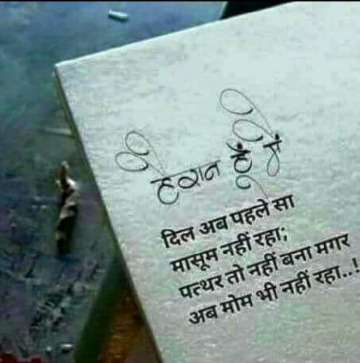 हैरान हूँ मैं
दिल अब पहले सा
मासूम नहीं रहा;
पत्थर तो नहीं बना मगर
अब मोम भी नहीं रहा..!